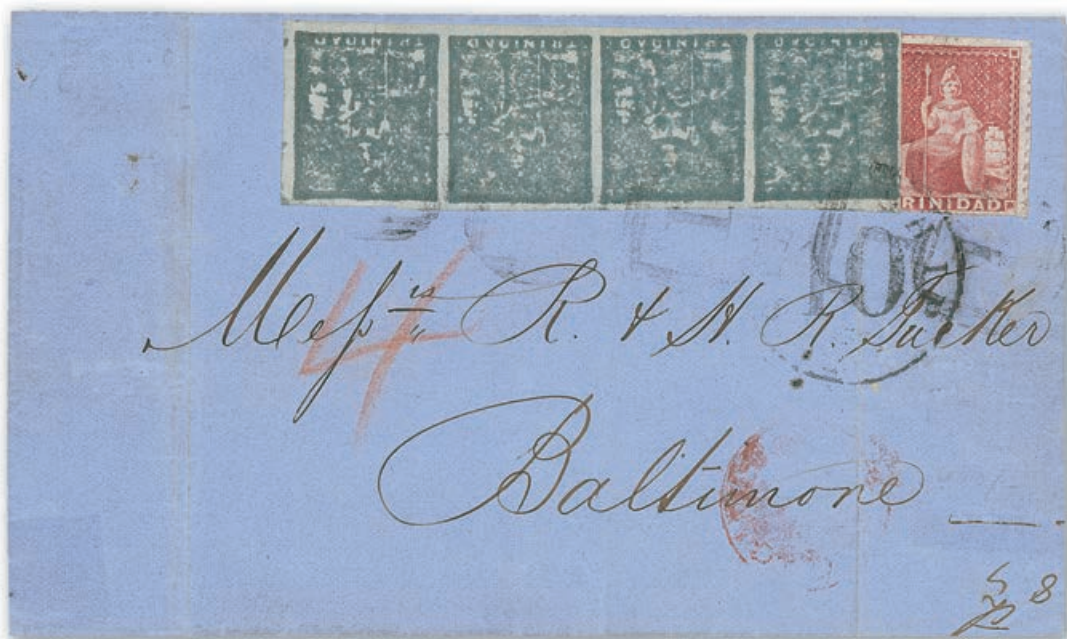 TRINIDAD TRINIDAD TRINIDAD TRINIDAD
RINIDAD
10
4
Messrs R. & H. R. Tucker
Baltimore
8